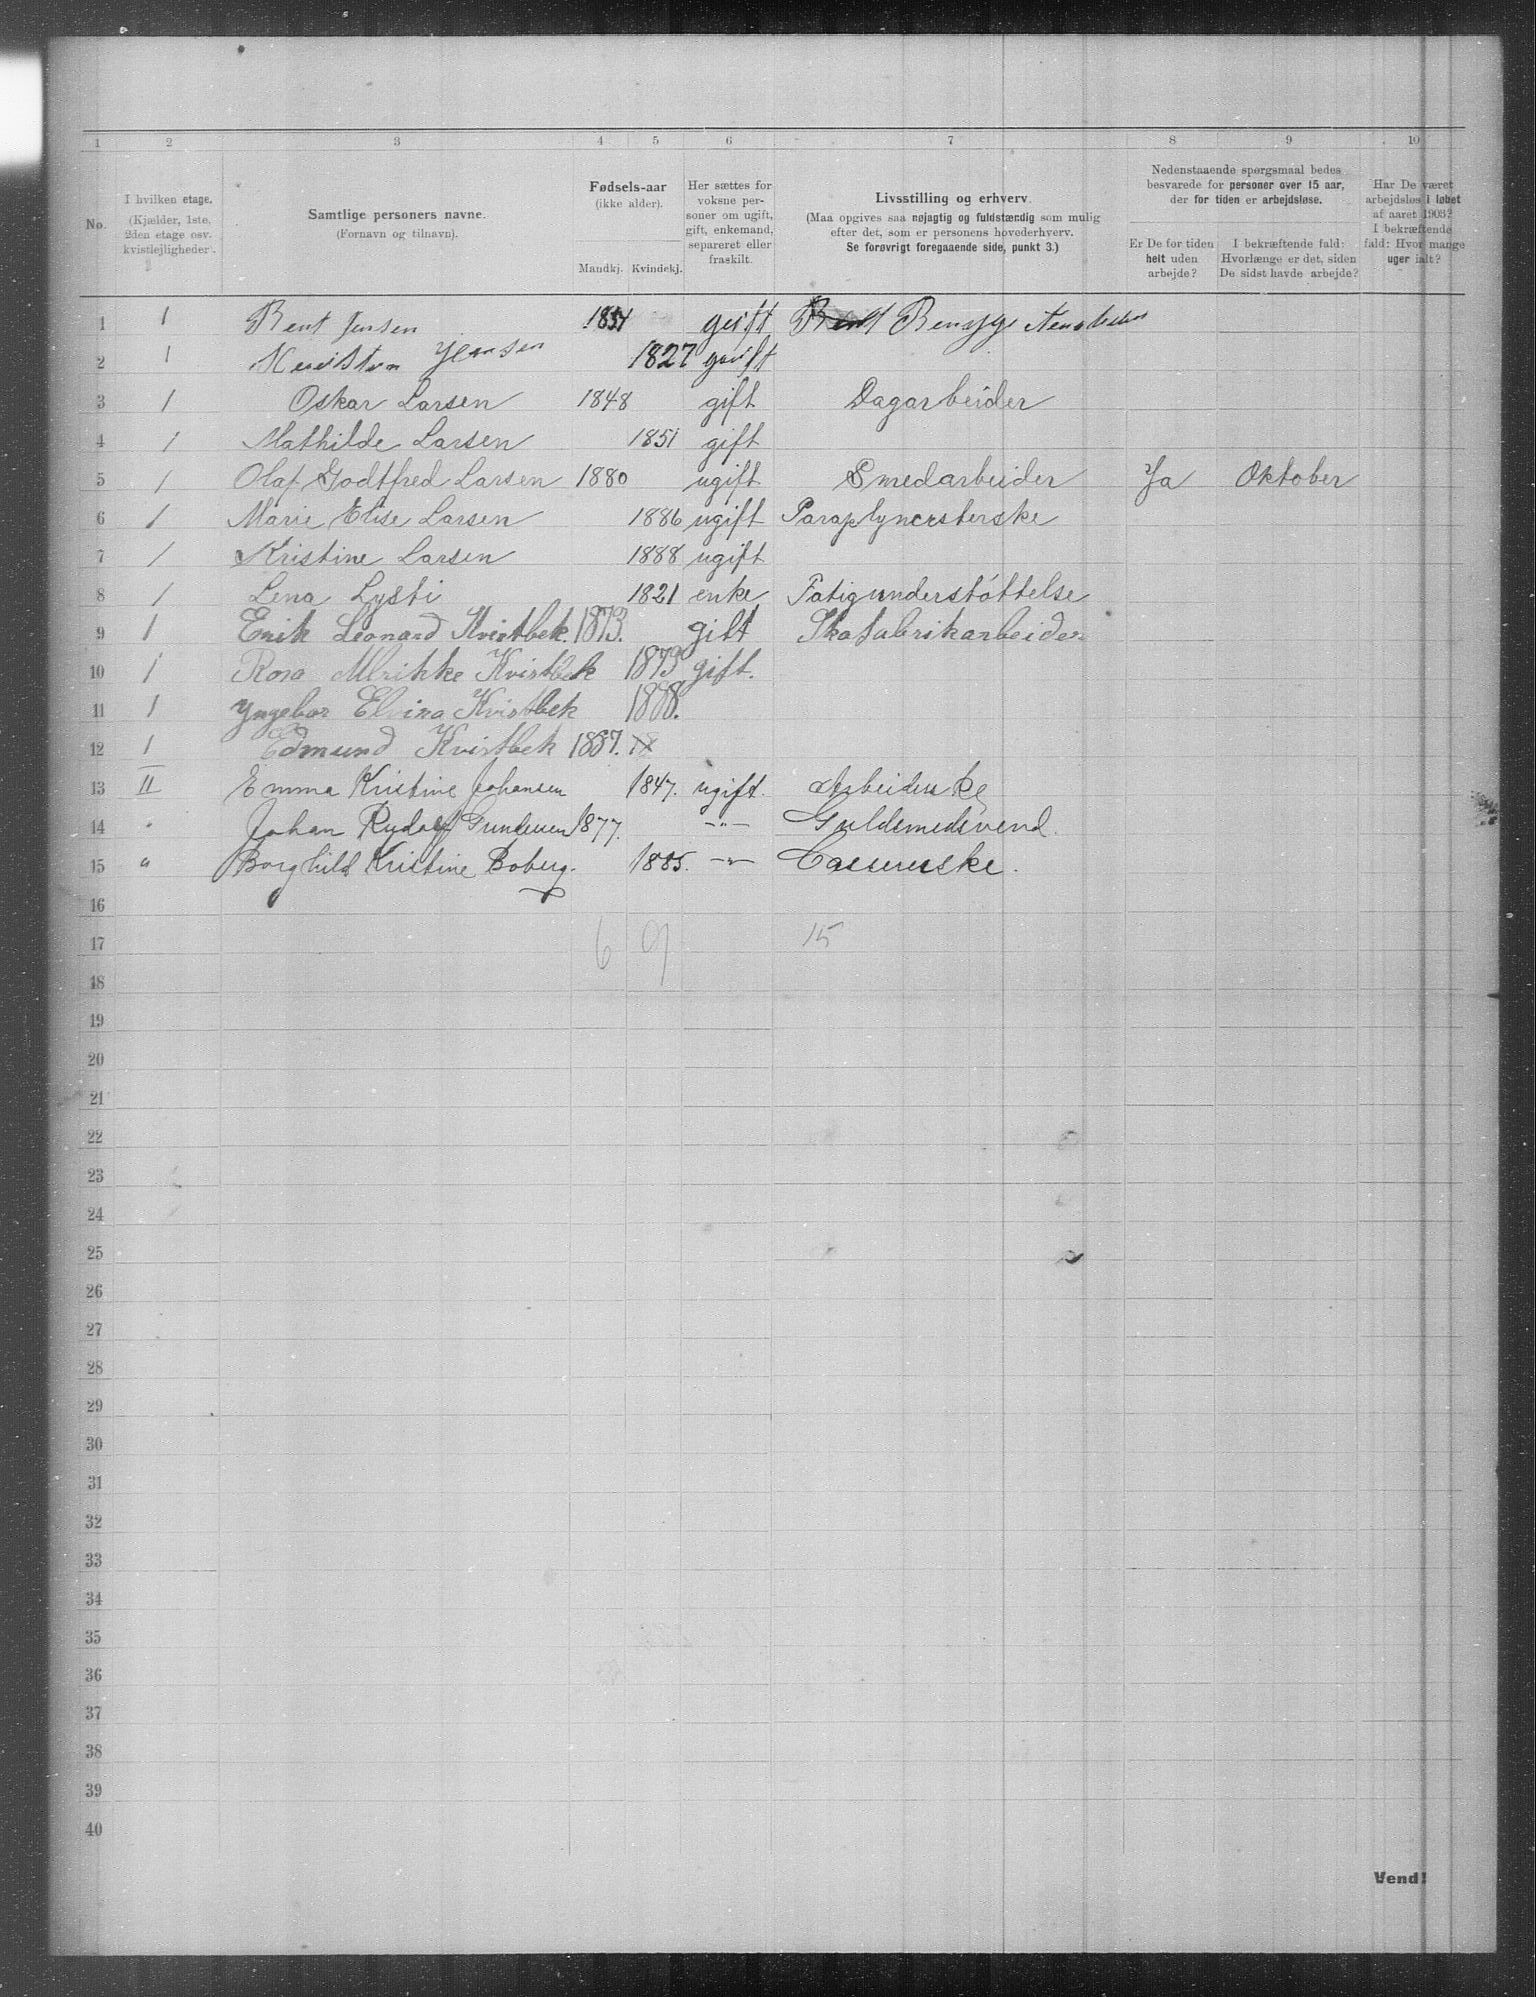 1 2 3 4 5 6 7 8 9 10
No.
I hvilken etage.
(Kjælder, 1ste,
2den etage osv.
kvistlejligheder.
Samtlige personers navne.
(Fornavn og tilnavn).
Fødsels-aar
(ikke alder).
Mandkj. Kvindekj.
Her sættes for
voksne per-
soner om ugift,
gift, enkemand,
separeret eller
fraskilt.
Livsstilling og erhverv.
(Maa opgives saa nøjagtig og fuldstærdig som mulig
efter det, som er personens hovederhverv.
Se forøvrigt foregaaende side, punkt 3.)
Nedenstaaende spørgsmaal bedes
besvarede for personer over 15 aar,
der for tiden er arbejdsløse.
Er De for tiden
helt uden
arbejde?
I bekræftende fald:
Hvorlænge er det, siden
De sidst havde arbejde?
Har De været
arbejdsløs i løbet
af aaret 1903?
I bekræftende
fald: Hvor mange
uger ialt?
1 1 Bent Jensen gift
2 1 1827 gift
3 1 Oskar Larsen 1848 gift Dagarbeider
4 1 Mathilde Larsen 1851 gift
5 1 Olaf Godtfred Larsen 1880 ugift Smedarbeider Ja Oktober
6 1 Marie Elise Larsen 1886 ugift
7 1 Kristine Larsen 1888 ugift
8 1 Lena Lysti 1821 enke Fatigunderstøttelse
9 1 Erik Leonard Kvistbek. 1873. gift Skofabrikarbeider
10 1 Rosa Ulrikke Kvistbek 1873 gift.
11 1 Yngebor Elvina Kvistbek
12 1 Edmund Kvistbek
13 II Emma Kristine Johansen 1847. ugift. Arbeiderske
14 " Johan Rudolf Gundersen 1877. -"- Guldsmedsvend.
15 " Borghild Kristine Boberg. 1885. -"-
16
17 6 9 15
18
19
20
21
22
23
24
25
26
27
28
29
30
31
32
33
34
35
36
37
38
39
40
Vend!